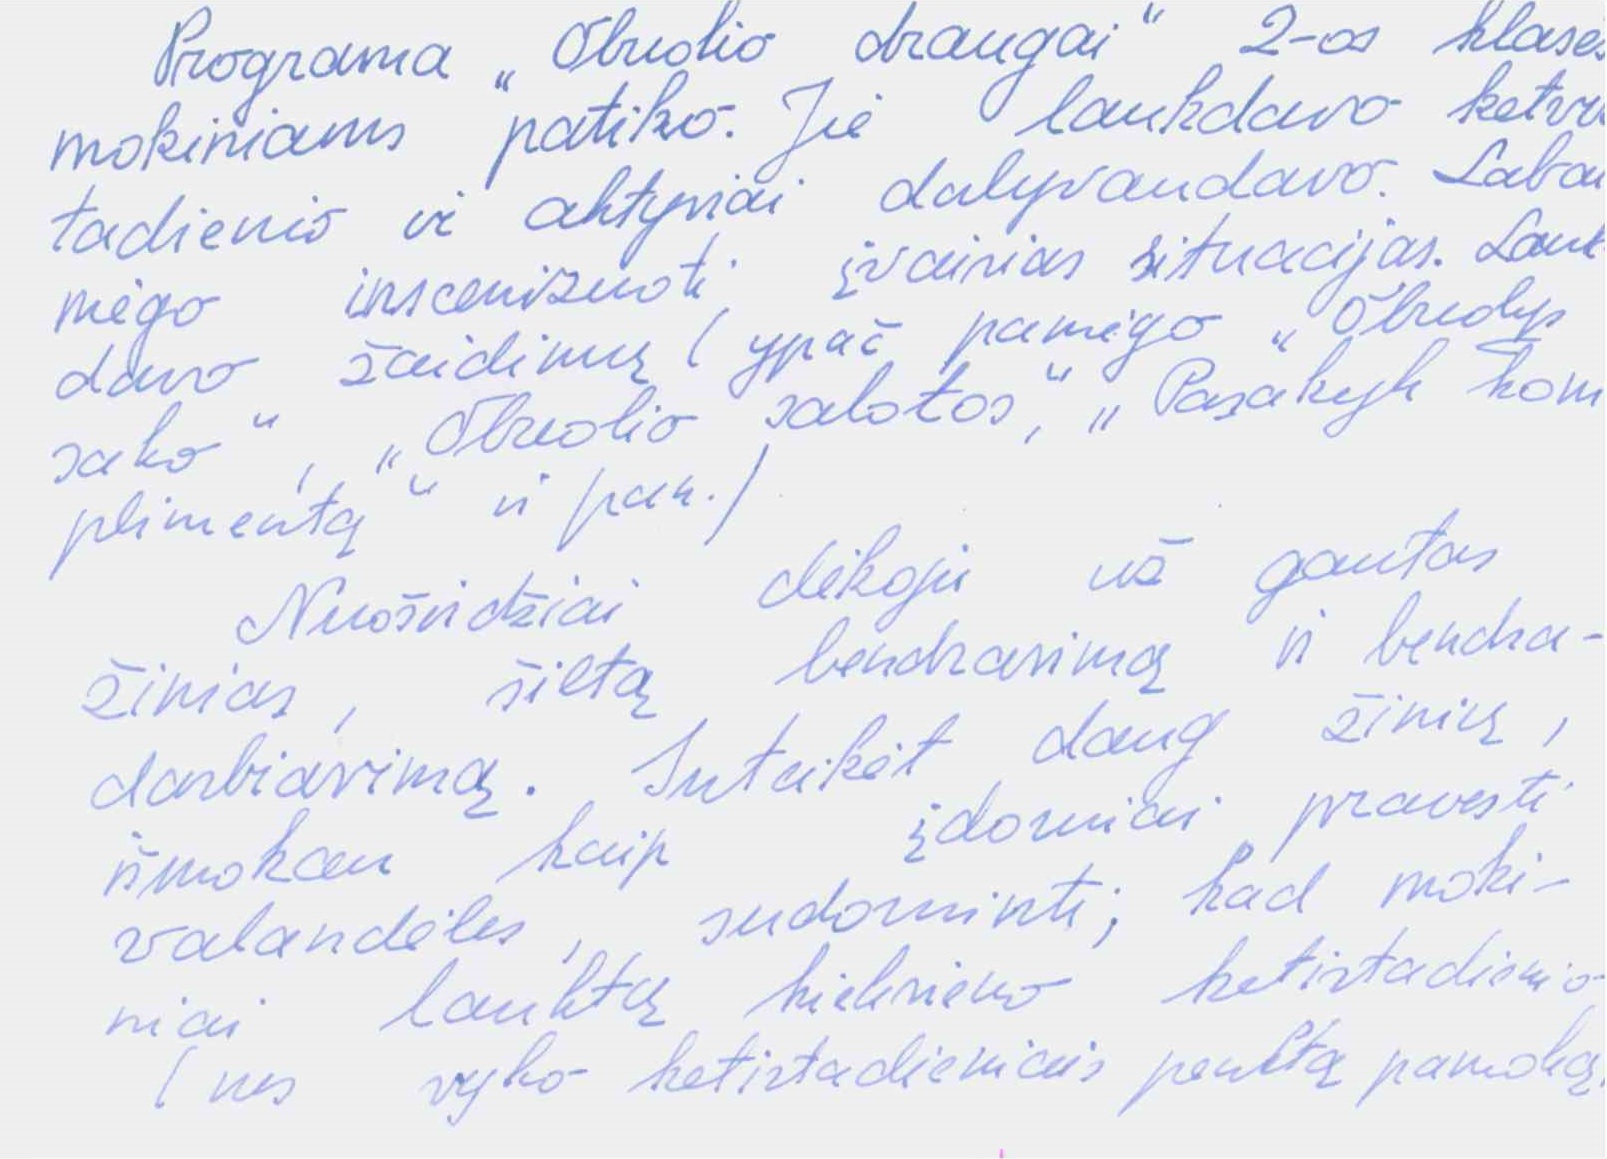 Programa „Obuolio draugai“ 2-os klasės
mokiniams patiko. Jie laukdavo ketvir
tadienio ir aktyviai dalyvaudavo. Labai
mėgo inscenizuoti įvairias situacijas. Lauk
davo žaidimų ( ypač pamėgo „Obuolys
sako“, „Obuolio salotos“, „Pasakyk kom
plimentą“ ir pan.)
Nuoširdžiai dėkoju už gautas
žinias, šiltą bendravimą ir bendra-
darbiavimą. Suteikėt daug žinių,
išmokau kaip įdomiai pravesti
valandėles, sudominti, kad moki-
niai lauktų kiekvieno ketirtadienio
( nes vyko ketirtadieniais penktą pamoką.